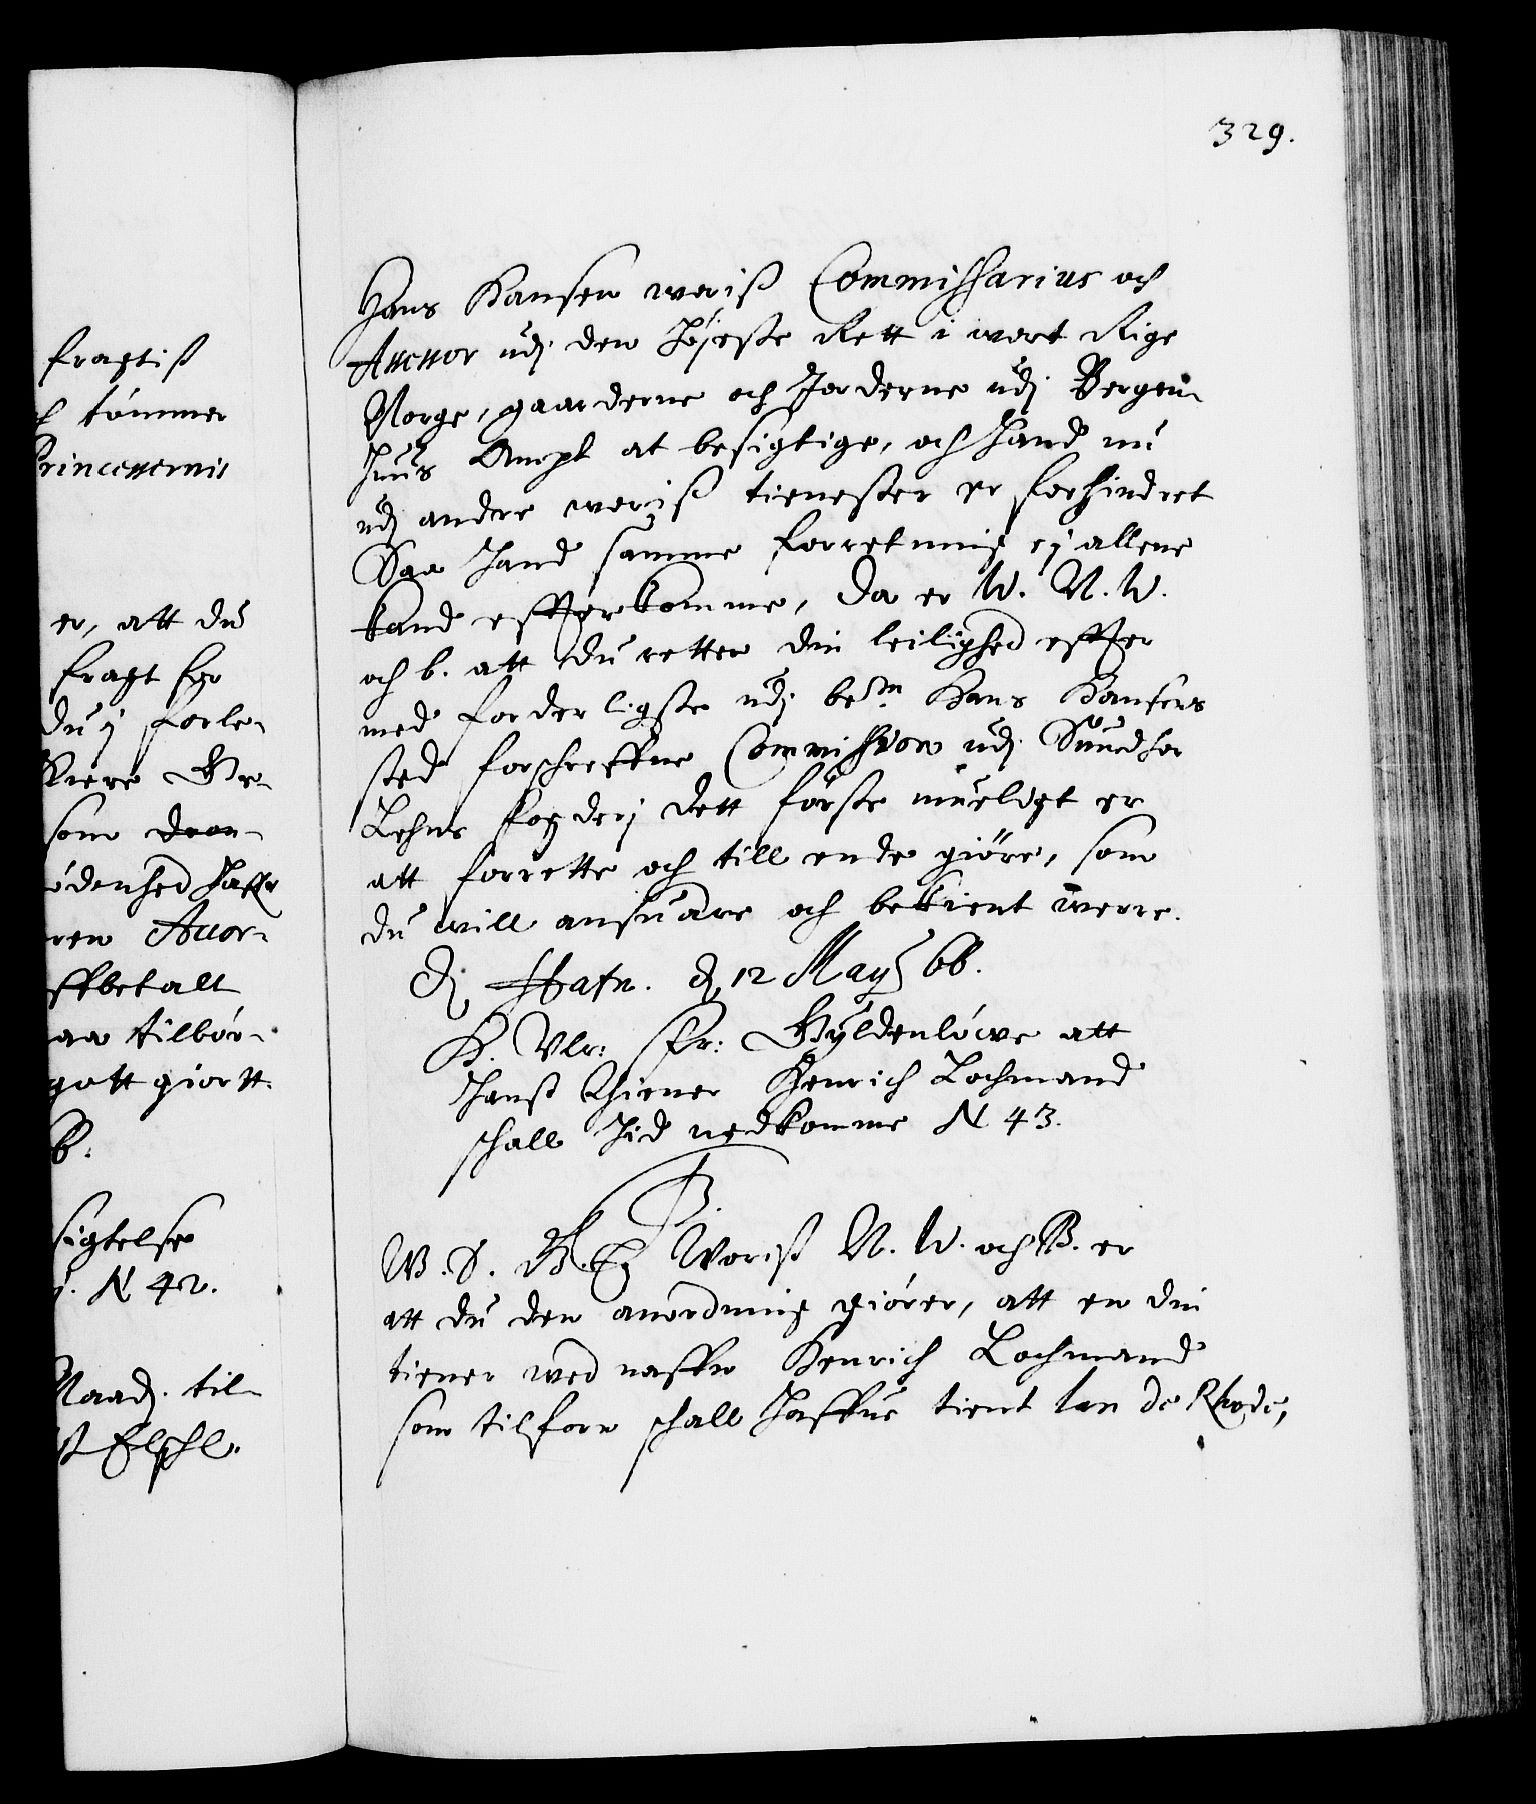 fragtiß
tömmer
Princessernis
er, att du
fragt for
du j forle-
som
ödenhed haffr
ren Accor-
ffbetalt
aa tilbör-
gott giortt.
6.
sigtelse
N 42.
Naad. til
329.
Hans Hansen woriß Commissarius och
Assessor udj den Höjeste Rett i wort Rige
Norge, gaarderne och Jorderne udj Bergen-
huus Ampt at besigtige, och hand nu
udj andre woriß tienester er forhindret
Saa hand samme forretning ej allene
kand efftterkomme, Da er W. N. W.
och b. att du retter din leilighed effter
med forderligste udj bem. Hans Hansens
sted forschreffne Commission udj Sundhor
Lehns fogderj dett förste mueligt er
att forrette och till ende giöre, som
du will ansuare och bekient werre.
Dj Hafn. d. 12 Maij 66.
H. Vlr: Fr: Gyldenlöwe att
hanß Thiener Henrich Lochmand
schall hid nedkomme N 43.
F3.
W. S. G. E. Woriß N. W. och B. er
att du den anordning giörer, att en din
tiener wed naffn Henrich Lochmand
som tilforn schall haffue tient Van de Rhode,